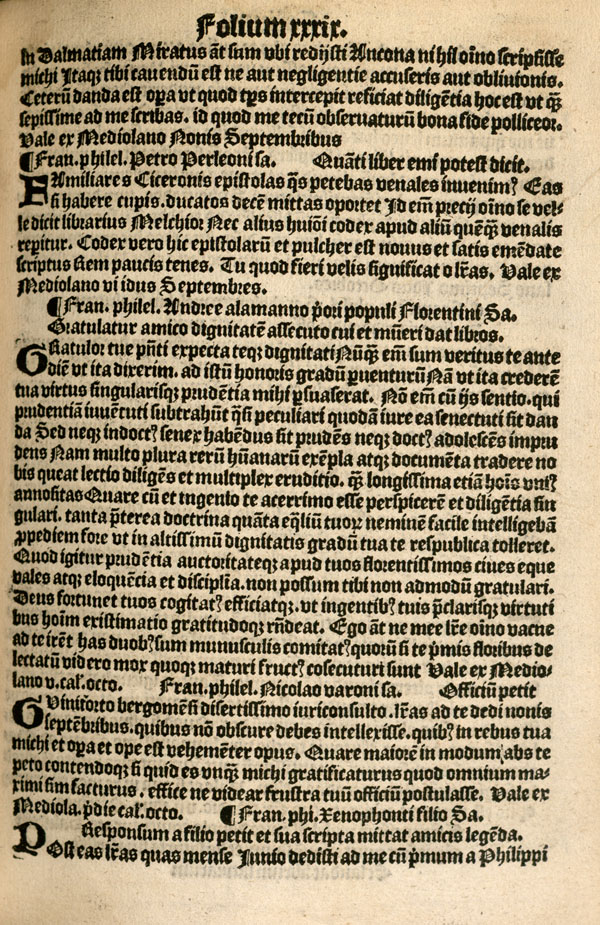 Folium xxxix.
In Dalmatiam Miratus āt sum vbi redijsti Ancona nihil oīno scripsisse
michi Itaqꝫ tibi cauendū est ne aut negligentie accuseris aut obliuionis.
Ceterū danda est oꝑa vt quod tp̄s intercepit reficiat diligētia hoc est vt q̄ꝫ
sepissime ad me scribas. id quod me tecū obseruaturū bona fide polliceor.
Vale ex Mediolano Nonis Septembribus
¶Fran. philel. Petro Perleoni sa. Quāti liber emi potest dicit.
FAmiliares Ciceronis epistolas q̄s petebas venales inuenimꝰ Eas
si habere cupis. ducatos decē mittas oportet Id em̄ precij oīno se vel-
le dicit librarius Melchior Nec alius huiōi codex apud aliū quēqꝫ venalis
reꝑitur. Codex vero hic epistolarū et pulcher est nouus et satis emēdate
scriptus Rem paucis tenes. Tu quod fieri velis significato lr̄as. Vale ex
Mediolano vi idus Septembres.
¶Fran. philel. Andree alamanno p̄ori populi Florentini Sa.
Gratulatur amico dignitatē assecuto cui et mūeri dat libros.
GRatulor tue p̄nti expectateqꝫ dignitati Nūqꝫ em̄ sum veritus te ante
diē vt ita dixerim. ad istū honoris gradū ꝑuenturū Nā vt ita crederē
tua virtus singularisqꝫ prudētia mihi ꝑsuaserat. Nō em̄ cū ijs sentio. qui
prudentiā iuuētuti subtrahūt q̄si peculiari quodā iure ea senectuti sit dan
da Sed neqꝫ indoctꝰ senex habēdus sit prudēs neqꝫ doctꝰ adolescēs impru
dens Nam multo plura rerū hūanarū exēpla atqꝫ documēta tradere no
bis queat lectio diligēs et multiplex eruditio. q̄ꝫ longissima etiā hoīs vniꝰ
annositas Quare cū et ingenio te acerrimo esse perspicerē et diligētia sin
gulari. tanta p̄terea doctrina quāta eq̄liū tuoꝝ neminē facile intelligebā
ꝓpediem fore vt in altissimū dignitatis gradū tua te respublica tolleret.
Quod igitur prudētia auctoritateqꝫ apud tuos florentissimos ciues eque
vales atqꝫ eloquēcia et disciplīa. non possum tibi non admodū gratulari.
Deus fortunet tuos cogitatꝰ efficiatqꝫ. vt ingentibꝰ tuis p̄clarisqꝫ virtuti
bus hoīm existimatio gratitudoqꝫ rn̄deat. Ego āt ne mee lr̄e oīno vacue
ad te irēt has duobꝰ sum munusculis comitatꝰ quorū si te p̄mis floribus de
lectatū videro mox quoqꝫ maturi fructꝰ cosecuturi sunt Vale ex Medio-
lano v. cal. octo. Fran. philel. Nicolao varoni sa. Officiū petit
GUiniforto bergomēsi disertissimo iuriconsulto. lr̄as ad te dedi nonis
septēbribus. quibus nō obscure debes intellexisse. quibꝰ in rebus tua
michi et opa et ope est vehemēter opus. Quare maiorē in modum abs te
peto contendoqꝫ si quid es vnq̄ꝫ michi gratificaturus quod omnium ma-
ximi sim facturus. effice ne videar frustra tuū officiū postulasse. Vale ex
Mediola. p̄die cal. octo. ¶Fran. phi. Xenophonti filio Sa.
Responsum a filio petit et sua scripta mittat amicis legēda.
POst eas lr̄as quas mense Iunio dedisti ad me cū p̄mum a Philippi